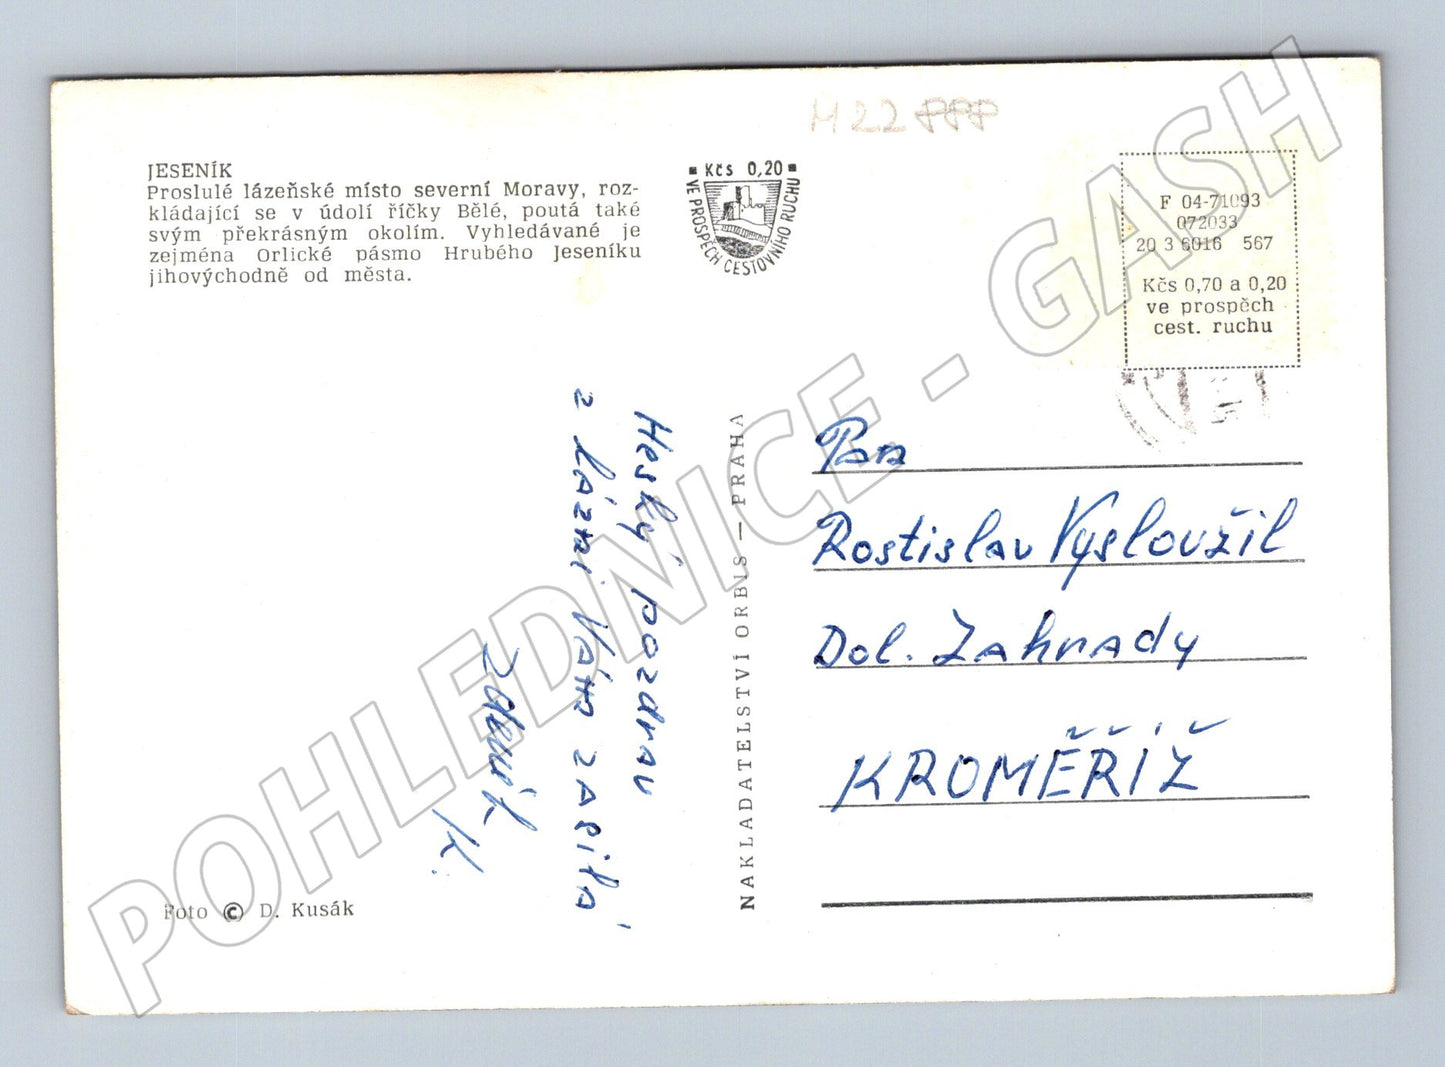 H22
JESENÍK
Proslulé lázeňské místo severní Moravy, roz-
kládající se v údolí říčky Bělé, poutá také
svým překrásným okolím. Vyhledávané je
zejména Orlické pásmo Hrubého Jeseníku
jihovýchodně od města.
Kčs 0,20
VE PROSPĚCH CESTOVNÍHO RUCHU
F 04-71093
072033
20 3 6016 567
Kčs 0,70 a 0,20
ve prospěch
cest. ruchu
Hesky pozdrav
z Lázní Vám zasílá
K.
NAKLADATELSTVÍ ORBIS — PRAHA
Pan
Rostislav Vysloužil
Dol. Zahrady
KROMĚŘÍŽ
Foto © D. Kusák
POHLEDNICE - GASH